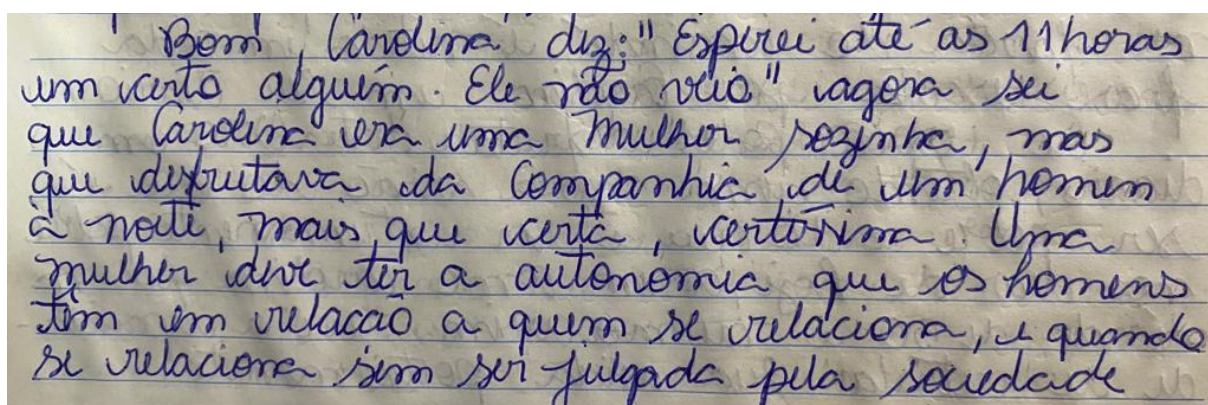 Bom, Carolina diz: "Esperei até as 11 horas
um certo alguém. Ele não veio" agora sei
que Carolina era uma mulher sozinha, mas
que desfrutava da Companhia de um homem
à noite, mais que certa, certíssima. Uma
mulher deve ter a autonomia que os homens
têm em relação a quem se relaciona, e quando
se relaciona sem ser julgada pela sociedade